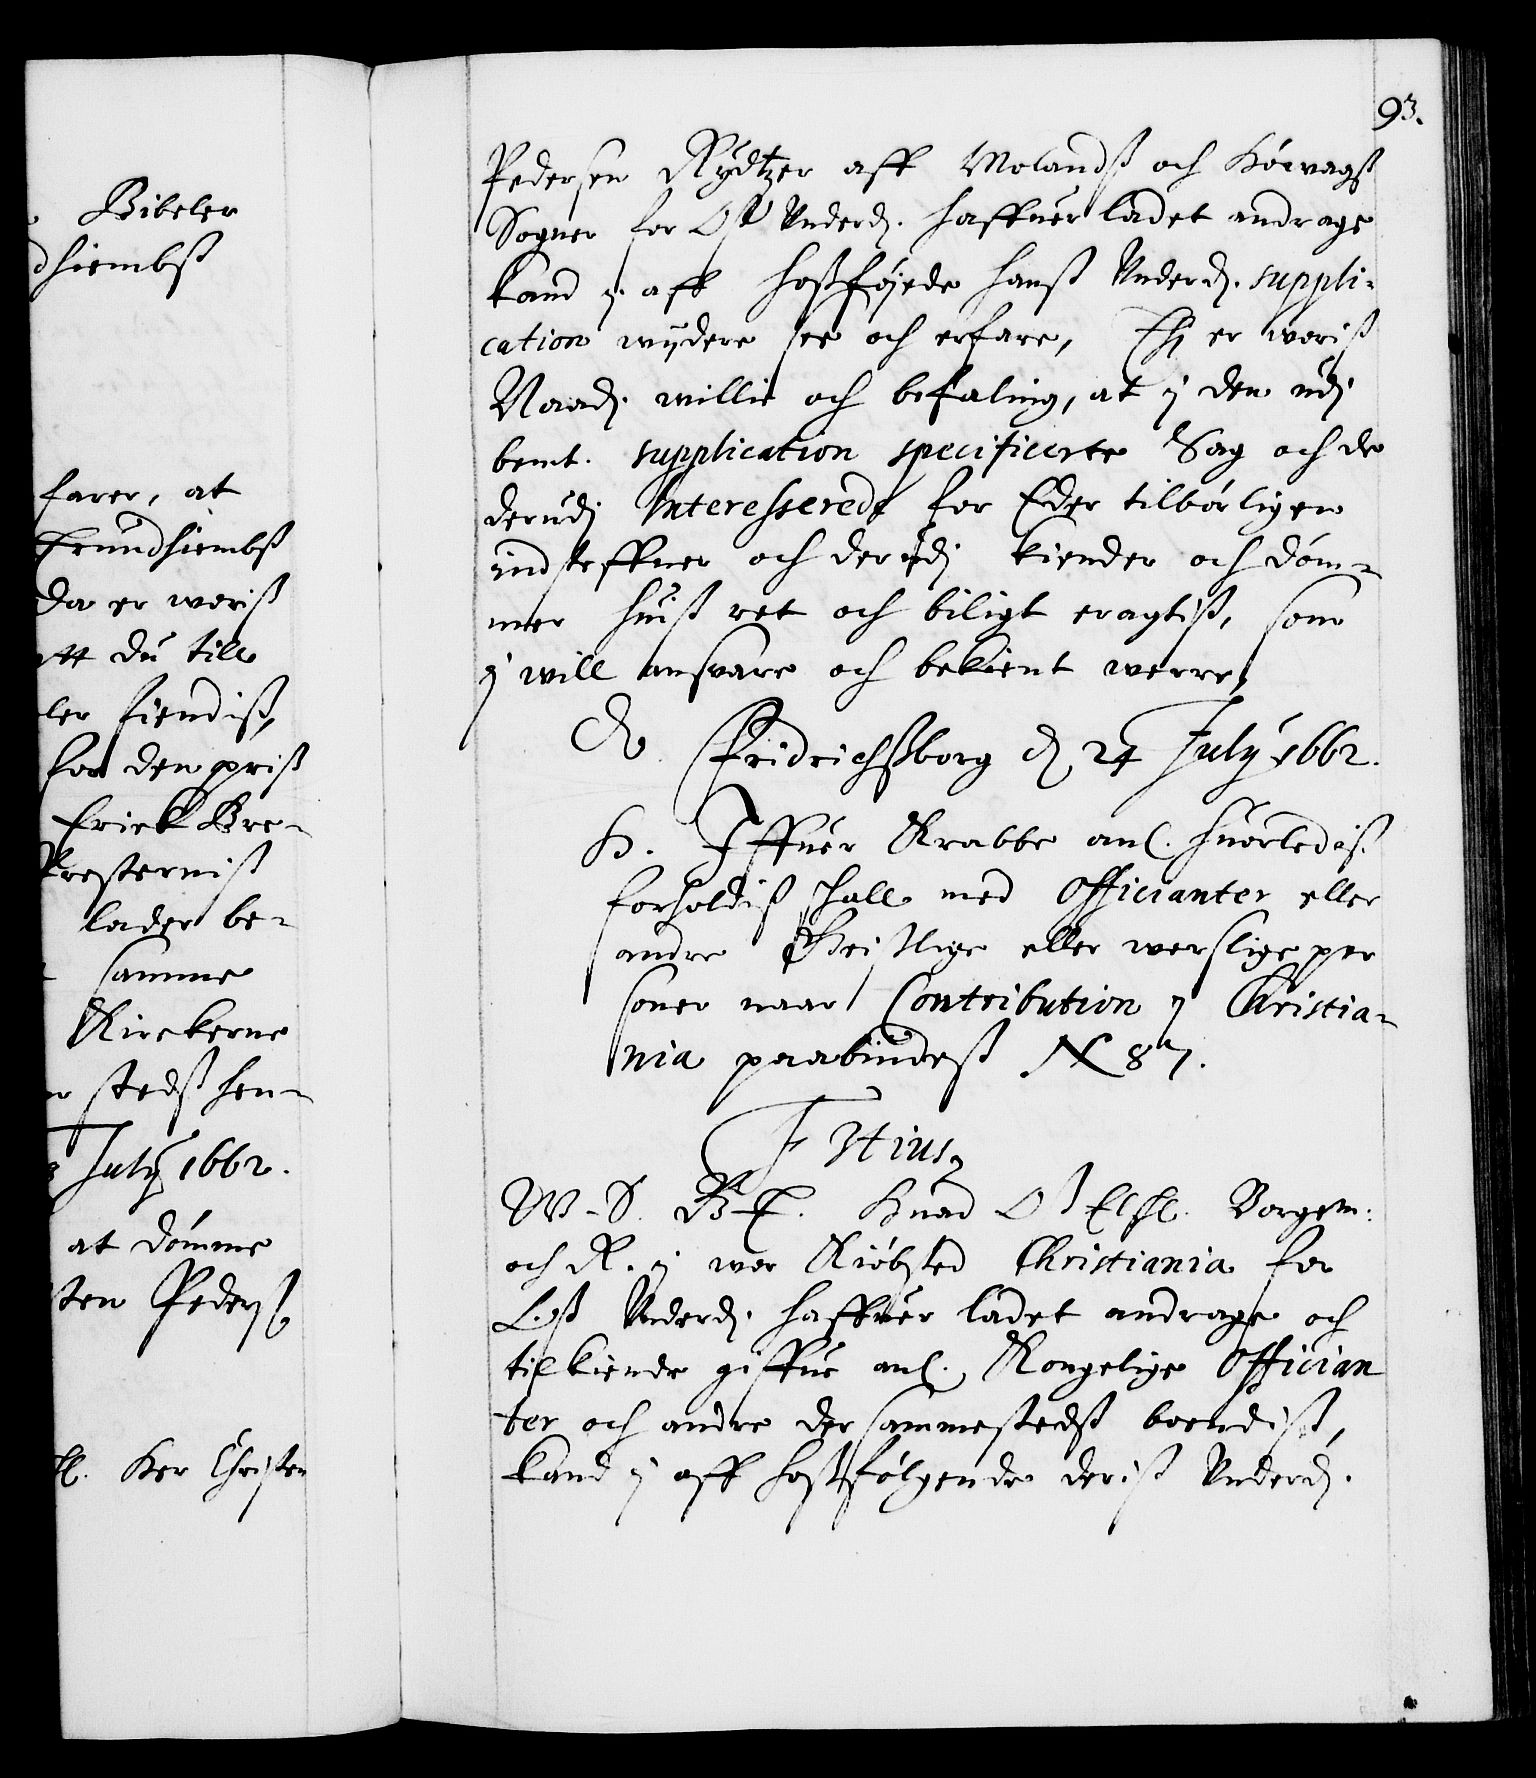 Bibeler
dhiembß
farer, at
Trundhiembß
da er woriß
att du till
ler fiendiß,
for den priß
Erick Bre-
Presterniß
lader be-
samme
Kirckerne
stedß hen-
July 1662.
at dømme
sten Pederß
Her Christen
93.
Pedersen Rydtzer aff Molandß och
Sogner for Oß Underd. haffuer ladet andrage
kand i aff hoßføyede hanß Underd. suppli-
cation wijdere see och erfare, Thj er woriß
Naad. willie och befaling, at i den udj
bemt. supplication specificerte Sag och de
derudj Interesserede for Eder tilbørligen
indsteffner och derudj kiender och døm-
mer huiß ret och biligt eragtiß, som
i will ansvare och bekient werre,
Fridrichßborg d 24 July 1662.
H. Iffuer Krabbe anl. huorlediß
forholdiß shall med Officianter eller
andre Geistlige eller werslige per
soner naar Contribution i Christia-
nia paabindeß N 87.
F 3tius,
W. S. G. T. Huad Oß Elshl. Borgem:
och R. i wor Kiøbsted Christiania for
Oß Underd. haffuer ladet andrage och
tilkiende giffue anl. Kongelige Offician
ter och andre der sammestedß boendiß,
kand i aff hoßfølgende deriß Underd.